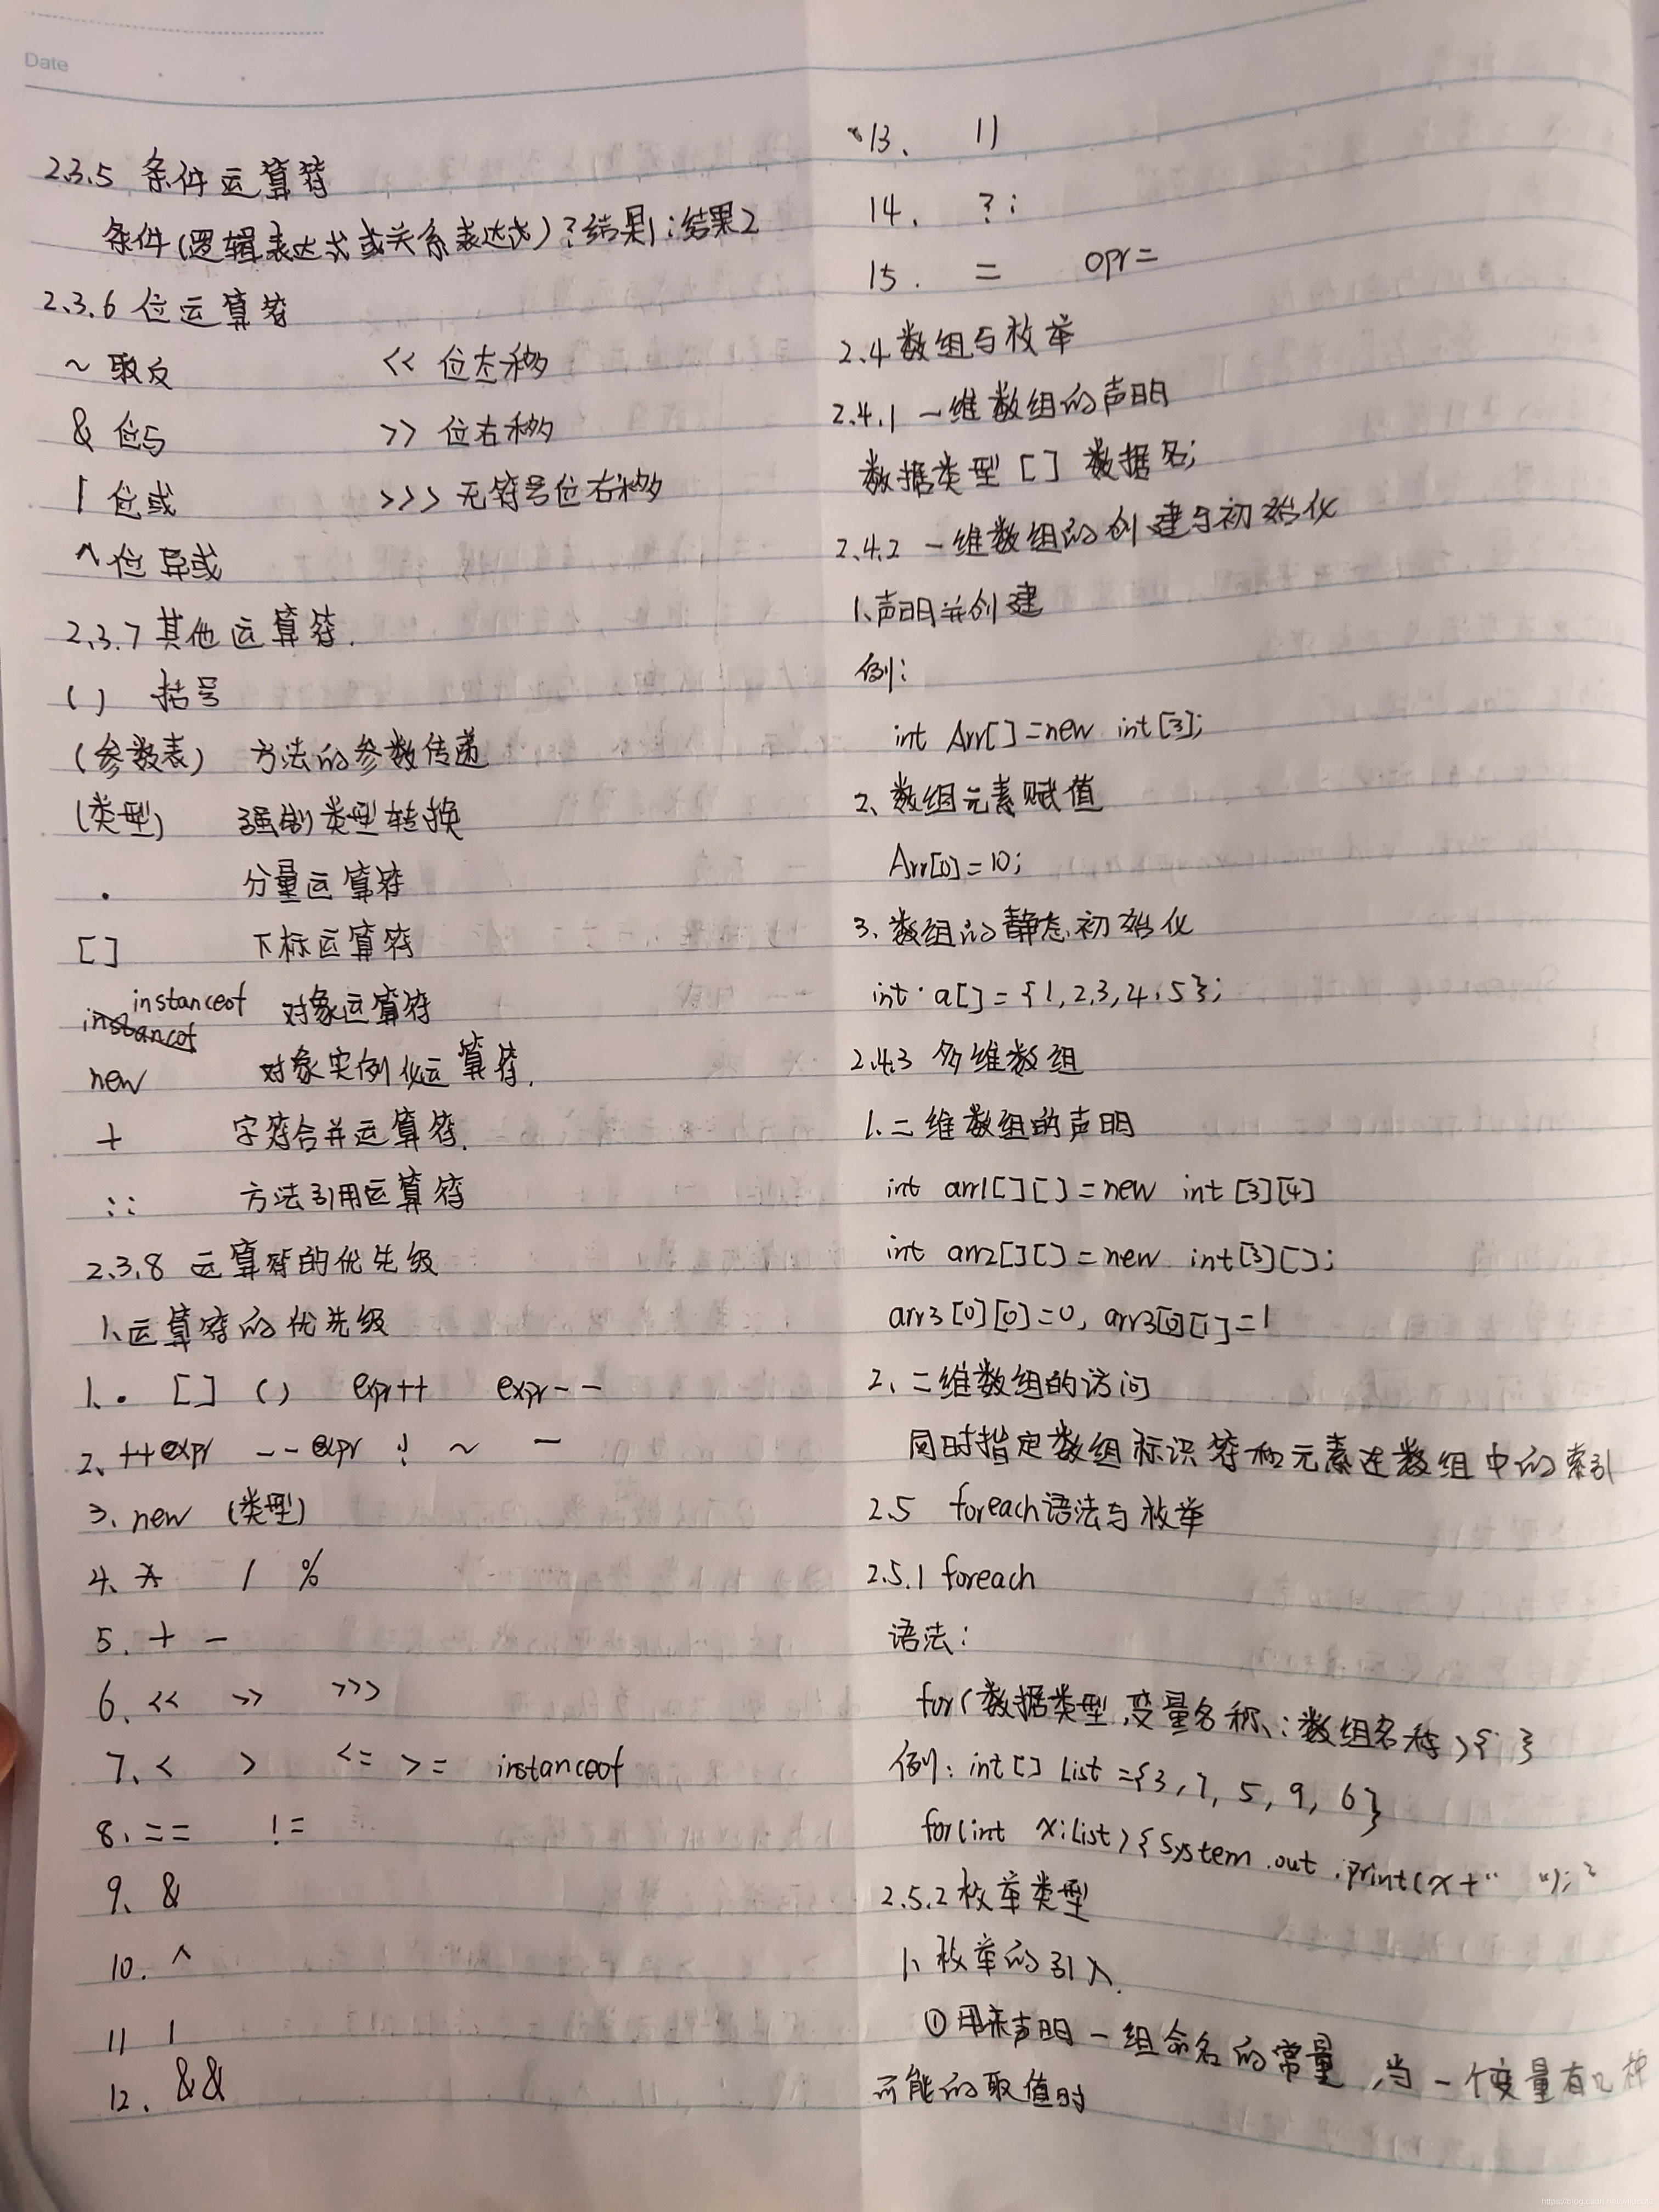 Date
2.3.5 条件运算符
条件(逻辑表达式或关系表达式)?结果1:结果2
2.3.6 位运算符
~ 取反 << 位左移
& 位与 >> 位右移
| 位或 >>> 无符号位右移
^ 位异或
2.3.7 其他运算符.
() 括号
(参数表) 方法的参数传递
(类型) 强制类型转换
. 分量运算符
[] 下标运算符
instanceof 对象运算符
new 对象实例化运算符.
+ 字符合并运算符.
:: 方法引用运算符
2.3.8 运算符的优先级
1、运算符的优先级
1、. [] () expr++ expr--
2、++expr --expr ! ~ -
3、new (类型)
4、* / %
5、+ -
6、<< >> >>>
7、< > <= >= instanceof
8、== !=
9、&
10. ^
11 |
12. &&
13、 ||
14. ?:
15. = opr=
2.4 数组与枚举
2.4.1 一维数组的声明
数据类型[] 数据名;
2.4.2 一维数组的创建与初始化
1、声明并创建
例:
int Arr[]=new int[3];
2、数组元素赋值
Arr[0]=10;
3、数组的静态初始化
int a[]={1,2,3,4,5};
2.4.3 多维数组
1、二维数组的声明
int arr1[][]=new int[3][4]
int arr2[][]=new int[3][];
arr3[0][0]=0, arr3[0][1]=1
2、二维数组的访问
同时指定数组标识符和元素在数组中的索引
2.5 foreach语法与枚举
2.5.1 foreach
语法:
for(数据类型 变量名称:数组名称){ }
例: int[] List={3,7,5,9,6}
for(int x:List){System.out.print(x+" ");
2.5.2 枚举类型
1、枚举的引入.
①用来声明一组命名的常量,当一个变量有几种
可能的取值时